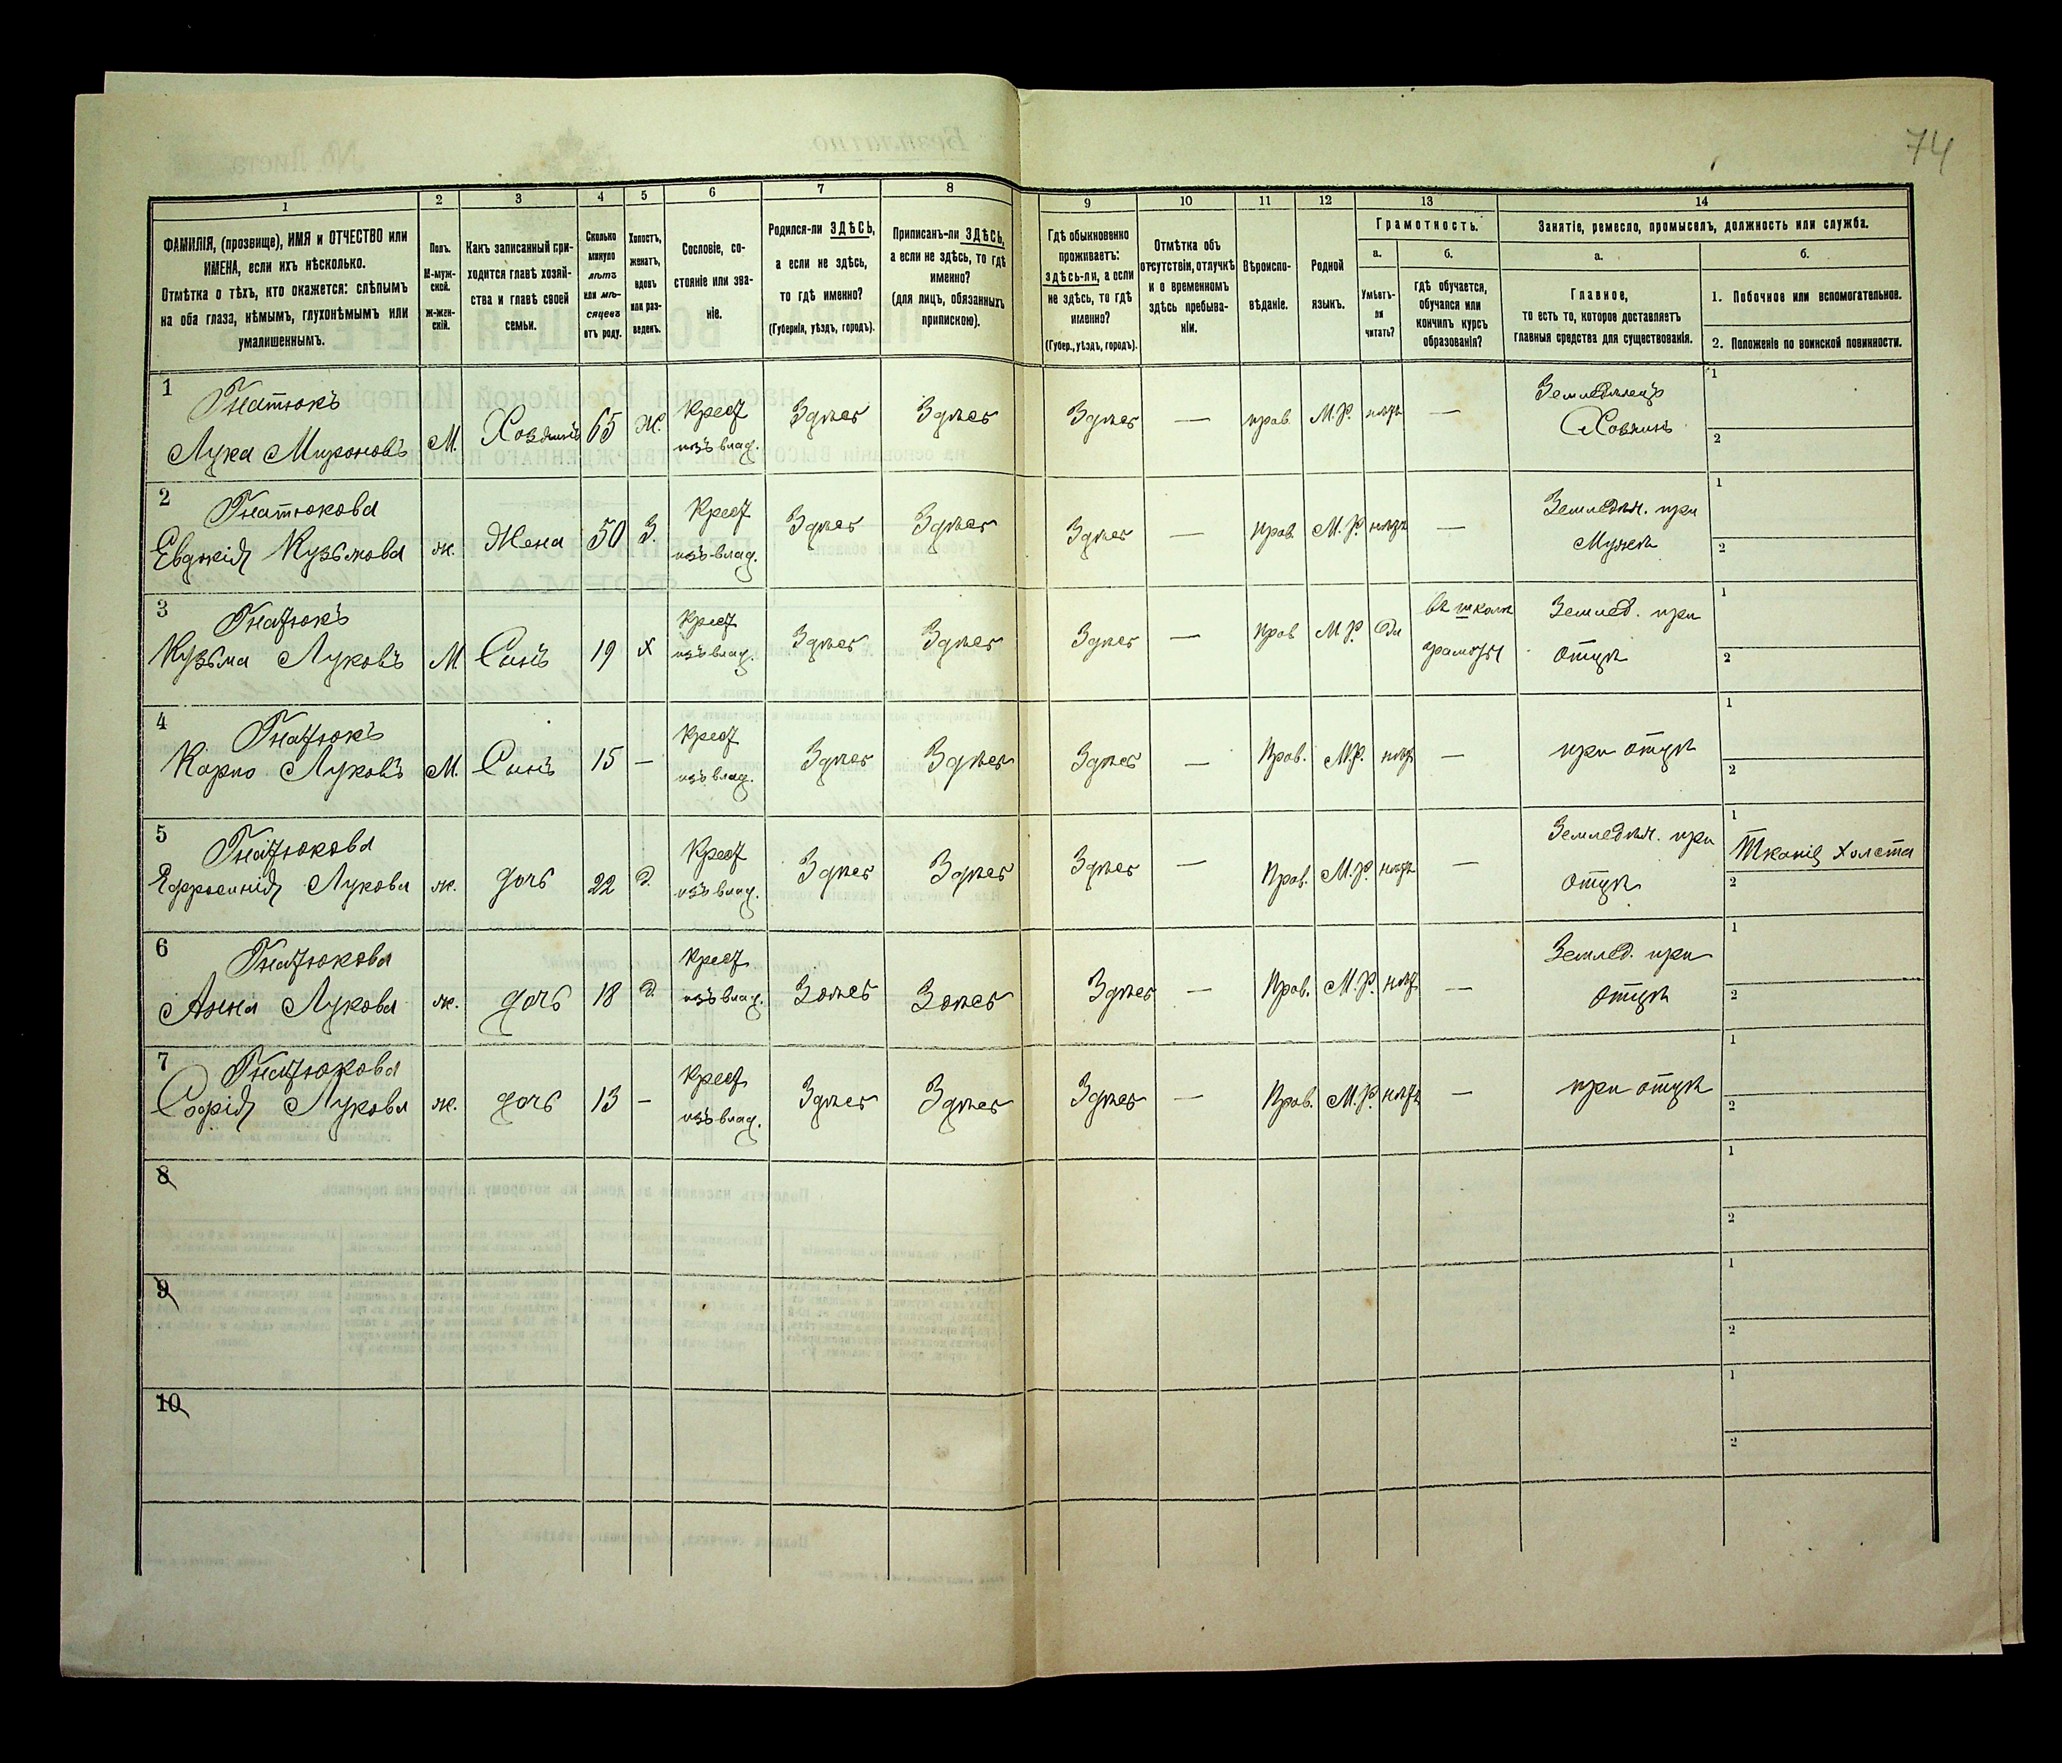 74
1 2 3 4 5 6 7 8 9 10 11 12 13 14
ФАМИЛІЯ, (прозвище), ИМЯ и ОТЧЕСТВО или
ИМЕНА, если ихъ нѣсколько.
Отмѣтка о тѣхъ, кто окажется: слѣпымъ
на оба глаза, нѣмымъ, глухонѣмымъ или
умалишеннымъ.
Полъ.
М-муж-
ской.
Ж-жен-
скій.
Какъ записанный при-
ходится главѣ хозяй-
ства и главѣ своей
семьи.
Сколько
минуло
лѣтъ
или мѣ-
сяцевъ
отъ роду.
Холостъ,
женатъ,
вдовъ
или раз-
веденъ.
Сословіе, со-
стояніе или зва-
ніе.
Родился-ли ЗДѢСЬ,
а если не здѣсь,
то гдѣ именно?
(Губернія, уѣздъ, городъ).
Приписанъ-ли ЗДѢСЬ,
а если не здѣсь, то гдѣ
именно?
(для лицъ, обязанныхъ
припискою).
Гдѣ обыкновенно
проживаетъ:
здѣсь-ли, а если
не здѣсь, то гдѣ
именно?
(Губер., уѣздъ, городъ).
Отмѣтка объ
отсутствіи, отлучкѣ
и о временномъ
здѣсь пребыва-
ніи.
Вѣроиспо-
вѣданіе.
Родной
языкъ.
Грамотность.
а. б.
Умѣетъ-
ли
читать?
гдѣ обучается,
обучался или
кончилъ курсъ
образованія?
Занятіе, ремесло, промыселъ, должность или служба.
а. б.
Главное,
то есть то, которое доставляетъ
главныя средства для существованія.
1. Побочное или вспомогательное.
2. Положеніе по воинской повинности.
1 Гнатюкъ Крест Земледѣлецъ 1
Лука Мироновъ М. Хозяинъ 65 Ж. изъ влад. Здѣсь Здѣсь Здѣсь — прав. М.Р. нѣтъ — Хозяинъ 2
2 Гнатюкова Крест Земледѣл. при 1
Евдокія Кузьмова ж. Жена 50 З. изъ влад. Здѣсь Здѣсь Здѣсь — прав. М.Р. нѣтъ — Мужѣ 2
3 Гнатюкъ Крест въ школѣ Землед. при 1
Кузьма Луковъ М. Сынъ 19 х изъ влад. Здѣсь Здѣсь Здѣсь — прав М.Р. Да грамоты отцѣ 2
4 Гнатюкъ Крест 1
Карпо Луковъ М. Сынъ 15 — изъ влад. Здѣсь Здѣсь Здѣсь — Прав. М.Р. нѣтъ — при отцѣ 2
5 Гнатюкова Крест Земледѣл. при 1 Тканіе холста
Ефросинія Лукова ж. дочь 22 Д. изъ влад. Здѣсь Здѣсь Здѣсь — Прав. М.Р. нѣтъ — отцѣ 2
6 Гнатюкова Крест Землед. при 1
Анна Лукова ж. дочь 18 Д. изъ влад. Здѣсь Здѣсь Здѣсь — Прав. М.Р. нѣтъ — отцѣ 2
7 Гнатюкова Крест 1
Софія Лукова ж. дочь 13 — изъ влад. Здѣсь Здѣсь Здѣсь — Прав. М.Р. нѣтъ — при отцѣ 2
8 1
2
9 1
2
10 1
2